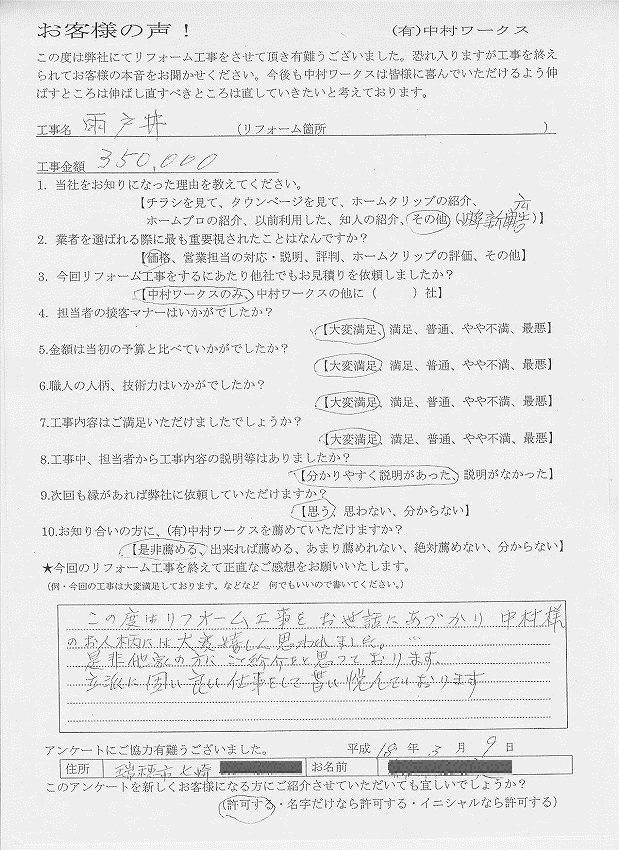 お客様の声！ (有)中村ワークス
この度は弊社にてリフォーム工事をさせて頂き有難うございました。恐れ入りますが工事を終え
られてお客様の本音をお聞かせください。今後も中村ワークスは皆様に喜んでいただけるよう伸
ばすところは伸ばし直すべきところは直していきたいと考えております。
工事名 雨戸 (リフォーム箇所 )
工事金額 350,000
1. 当社をお知りになった理由を教えてください。
【チラシを見て、タウンページを見て、ホームクリップの紹介、
ホームプロの紹介、以前利用した、知人の紹介、その他( 新聞広告)】
2. 業者を選ばれる際に最も重要視されたことはなんですか？
【価格、営業担当の対応・説明、評判、ホームクリップの評価、その他】
3. 今回リフォーム工事をするにあたり他社でもお見積りを依頼しましたか？
【中村ワークスのみ、中村ワークスの他に（ ）社】
4. 担当者の接客マナーはいかがでしたか？
【大変満足、満足、普通、やや不満、最悪】
5.金額は当初の予算と比べていかがでしたか？
【大変満足、満足、普通、やや不満、最悪】
6.職人の人柄、技術力はいかがでしたか？
【大変満足、満足、普通、やや不満、最悪】
7.工事内容はご満足いただけましたでしょうか？
【大変満足、満足、普通、やや不満、最悪】
8.工事中、担当者から工事内容の説明等はありましたか？
【分かりやすく説明があった、説明がなかった】
9.次回も縁があれば弊社に依頼していただけますか？
【思う、思わない、分からない】
10.お知り合いの方に、(有)中村ワークスを薦めていただけますか？
【是非薦める、出来れば薦める、あまり薦めれない、絶対薦めない、分からない】
★今回のリフォーム工事を終えて正直なご感想をお願いいたします。
（例・今回の工事は大変満足しております。などなど 何でもいいので書いてください。）
この度はリフォーム工事をお世話にあづかり 中村様
のお人柄には大変嬉しく思われました。
是非他家の方にご紹介をと思っております。
立派に固い良い仕事をして おります
アンケートにご協力有難うございました。 平成 18 年 3 月 9 日
住所 瑞穂市七崎 お名前
このアンケートを新しくお客様になる方にご紹介させていただいても宜しいでしょうか？
（許可する・名字だけなら許可する・イニシャルなら許可する）